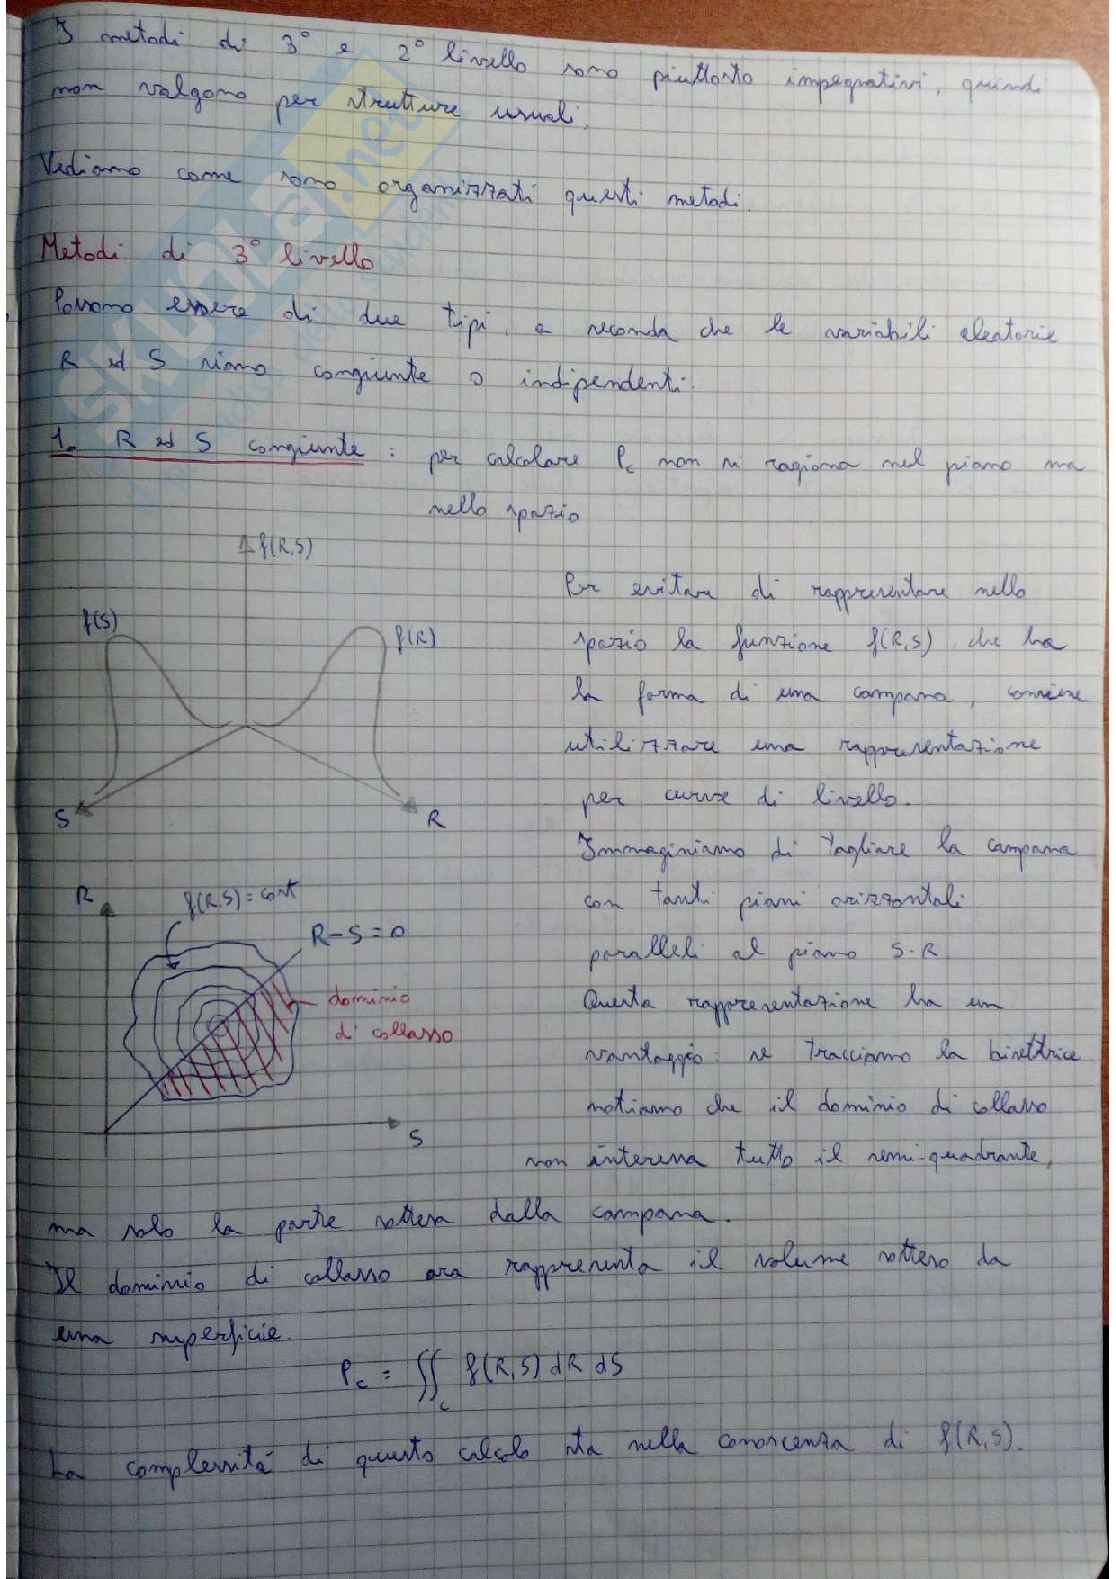 I metodi di 3° e 2° livello sono piuttosto impegnativi, quindi
non valgono per strutture usuali.
Vediamo come sono organizzati questi metodi.
Metodi di 3° livello
Possono essere di due tipi, a seconda che le variabili aleatorie
R ed S siano congiunte o indipendenti:
1. R ed S congiunte : per calcolare Pc non si ragiona nel piano ma
nello spazio
f(R,S)
f(S)
f(R)
S
R
Per evitare di rappresentare nello
spazio la funzione f(R,S), che ha
la forma di una campana, conviene
utilizzare una rappresentazione
per curve di livello.
Immaginiamo di tagliare la campana
con tanti piani orizzontali
paralleli al piano S-R
R
f(R,S) = cost
R-S=0
dominio
di collasso
S
Questa rappresentazione ha un
vantaggio: se tracciamo la bisettrice
notiamo che il dominio di collasso
non interessa tutto il semi-quadrante,
ma solo la parte sottesa dalla campana.
Il dominio di collasso ora rappresenta il volume sotteso da
una superficie.
Pc = ∬c f(R,S) dR dS
La complessità di questo calcolo sta nella conoscenza di f(R,S).
SKUOLA.net